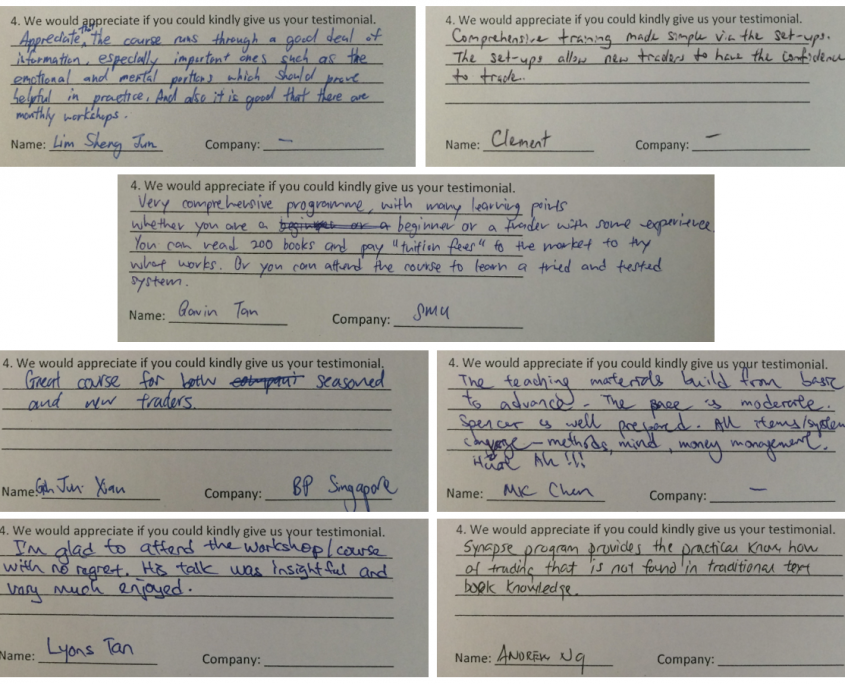 4. We would appreciate if you could kindly give us your testimonial.
Appreciate that the course runs through a good deal of
information, especially important ones such as the
emotional and mental portions which should prove
helpful in practice. And also it is good that there are
monthly workshops.
Name: Lim Sheng Jun Company: —
4. We would appreciate if you could kindly give us your testimonial.
Comprehensive training made simple via the set-ups.
The set-ups allow new traders to have the confidence
to trade.
Name: Clement Company: —
4. We would appreciate if you could kindly give us your testimonial.
Very comprehensive programme, with many learning points
whether you are a beginner or a trader with some experience
You can read 200 books and pay "tuition fees" to the market to try
what works. Or you can attend the course to learn a tried and tested
system.
Name: Gavin Tan Company: SMU
4. We would appreciate if you could kindly give us your testimonial.
Great course for both seasoned
and new traders.
Name: Jun Xian Company: BP Singapore
4. We would appreciate if you could kindly give us your testimonial.
The teaching materials build from basic
to advance - The pace is moderate.
Spencer is well prepared. All items/system
- methods, mind, money management.
Huat Ah !!!
Name: MK Chen Company: —
4. We would appreciate if you could kindly give us your testimonial.
I'm glad to attend the workshop/course
with no regret. His talk was insightful and
very much enjoyed.
Name: Lyons Tan Company:
4. We would appreciate if you could kindly give us your testimonial.
Synapse program provides the practical know how
of trading that is not found in traditional text
book knowledge.
Name: ANDREW NG Company: